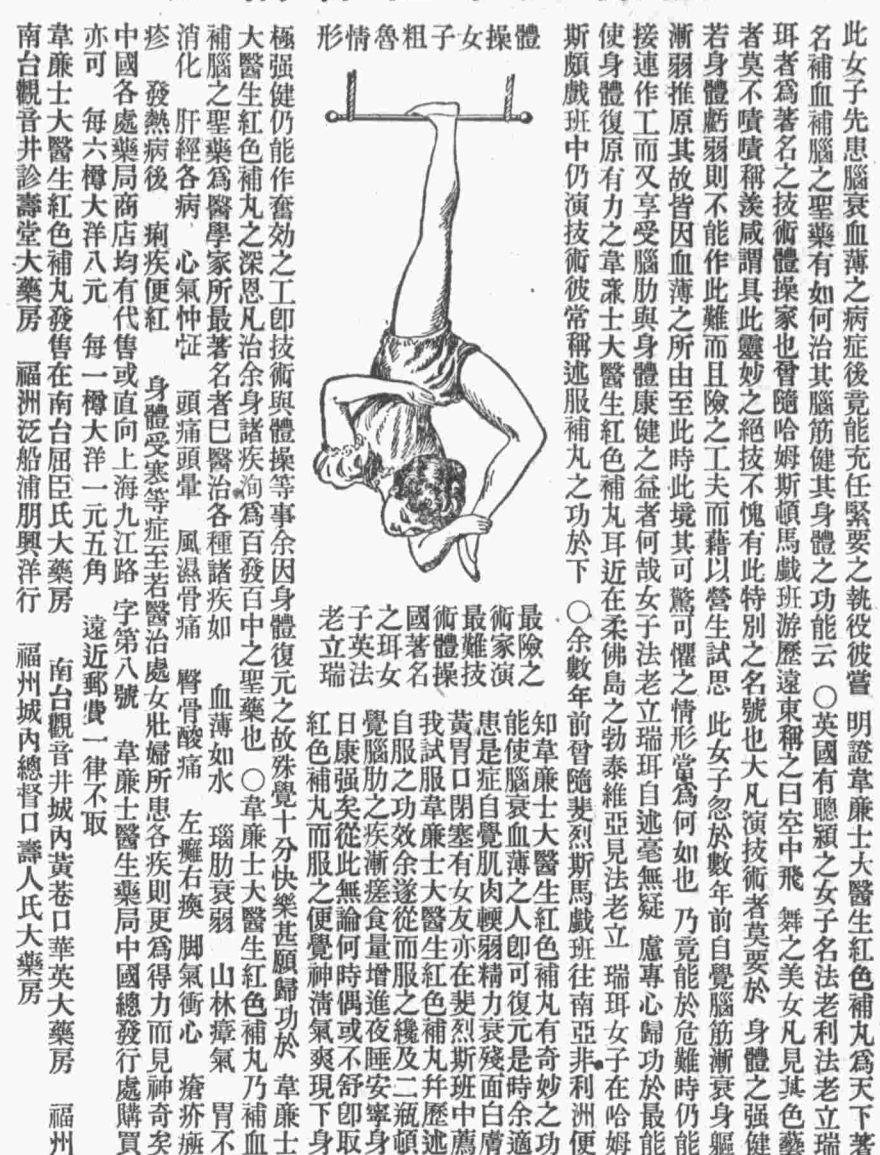 此女子先患腦衰血薄之病症後竟能充任緊要之執役彼嘗 明證韋廉士大醫生紅色補丸爲天下著
名補血補腦之聖藥有如何治其腦筋健其身體之功能云 〇英國有聰穎之女子名法老利法老立瑞
珥者爲著名之技術體操家也曾隨哈姆斯頓馬戲班游歷遠東稱之曰空中飛 舞之美女凡見其色藝
者莫不嘖嘖稱羨咸謂具此靈妙之絕技不愧有此特別之名號也大凡演技術者莫要於 身體之强健
若身體虧弱則不能作此難而且險之工夫而藉以營生試思 此女子忽於數年前自覺腦筋漸衰身軀
漸弱推原其故皆因血薄之所由至此時此境其可驚可懼之情形當爲何如也 乃竟能於危難時仍能
接連作工而又享受腦肋與身體康健之益者何哉女子法老立瑞珥自述毫無疑 慮專心歸功於最能
使身體復原有力之韋亷士大醫生紅色補丸耳近在柔佛島之勃泰維亞見法老立 瑞珥女子在哈姆
斯頗戲班中仍演技術彼常稱述服補丸之功於下 〇余數年前曾隨斐烈斯馬戲班往南亞非利洲便
體操女子粗魯情形
最險之
術家演
最難技
術體操
國著名
之珥女
子英法
老立瑞
知韋廉士大醫生紅色補丸有奇妙之功
能使腦衰血薄之人卽可復元是時余適
患是症自覺肌肉輭弱精力衰殘面白膚
黃胃口閉塞有女友亦在斐烈斯班中薦
我試服韋廉士大醫生紅色補丸幷歷述
自服之功效余遂從而服之纔及二瓶頓
覺腦肋之疾漸瘥食量增進夜睡安寧身
日康强矣從此無論何時偶或不舒卽取
紅色補丸而服之便覺神淸氣爽現下身
極强健仍能作奮効之工卽技術與體操等事余因身體復元之故殊覺十分快樂甚願歸功於 韋廉士
大醫生紅色補丸之深恩凡治余身諸疾洵爲百發百中之聖藥也 〇韋廉士大醫生紅色補丸乃補血
補腦之聖藥爲醫學家所最著名者巳醫治各種諸疾如 血薄如水 瑙肋衰弱 山林瘴氣 胃不
消化 肝經各病 心氣忡怔 頭痛頭暈 風濕骨痛 臀骨酸痛 左癱右瘓 脚氣衝心 瘡疥癬
疹 發熱病後 痢疾便紅 身體受寒等症至若醫治處女壯婦所患各疾則更爲得力而見神奇矣
中國各處藥局商店均有代售或直向上海九江路 字第八號 韋廉士醫生藥局中國總發行處購買
亦可 每六樽大洋八元 每一樽大洋一元五角 遠近郵費一律不取
韋廉士大醫生紅色補丸發售在南台屈臣氏大藥房 南台觀音井城內黃巷口華英大藥房 福州
南台觀音井診壽堂大藥房 福洲泛船浦朋興洋行 福州城內總督口壽人氏大藥房